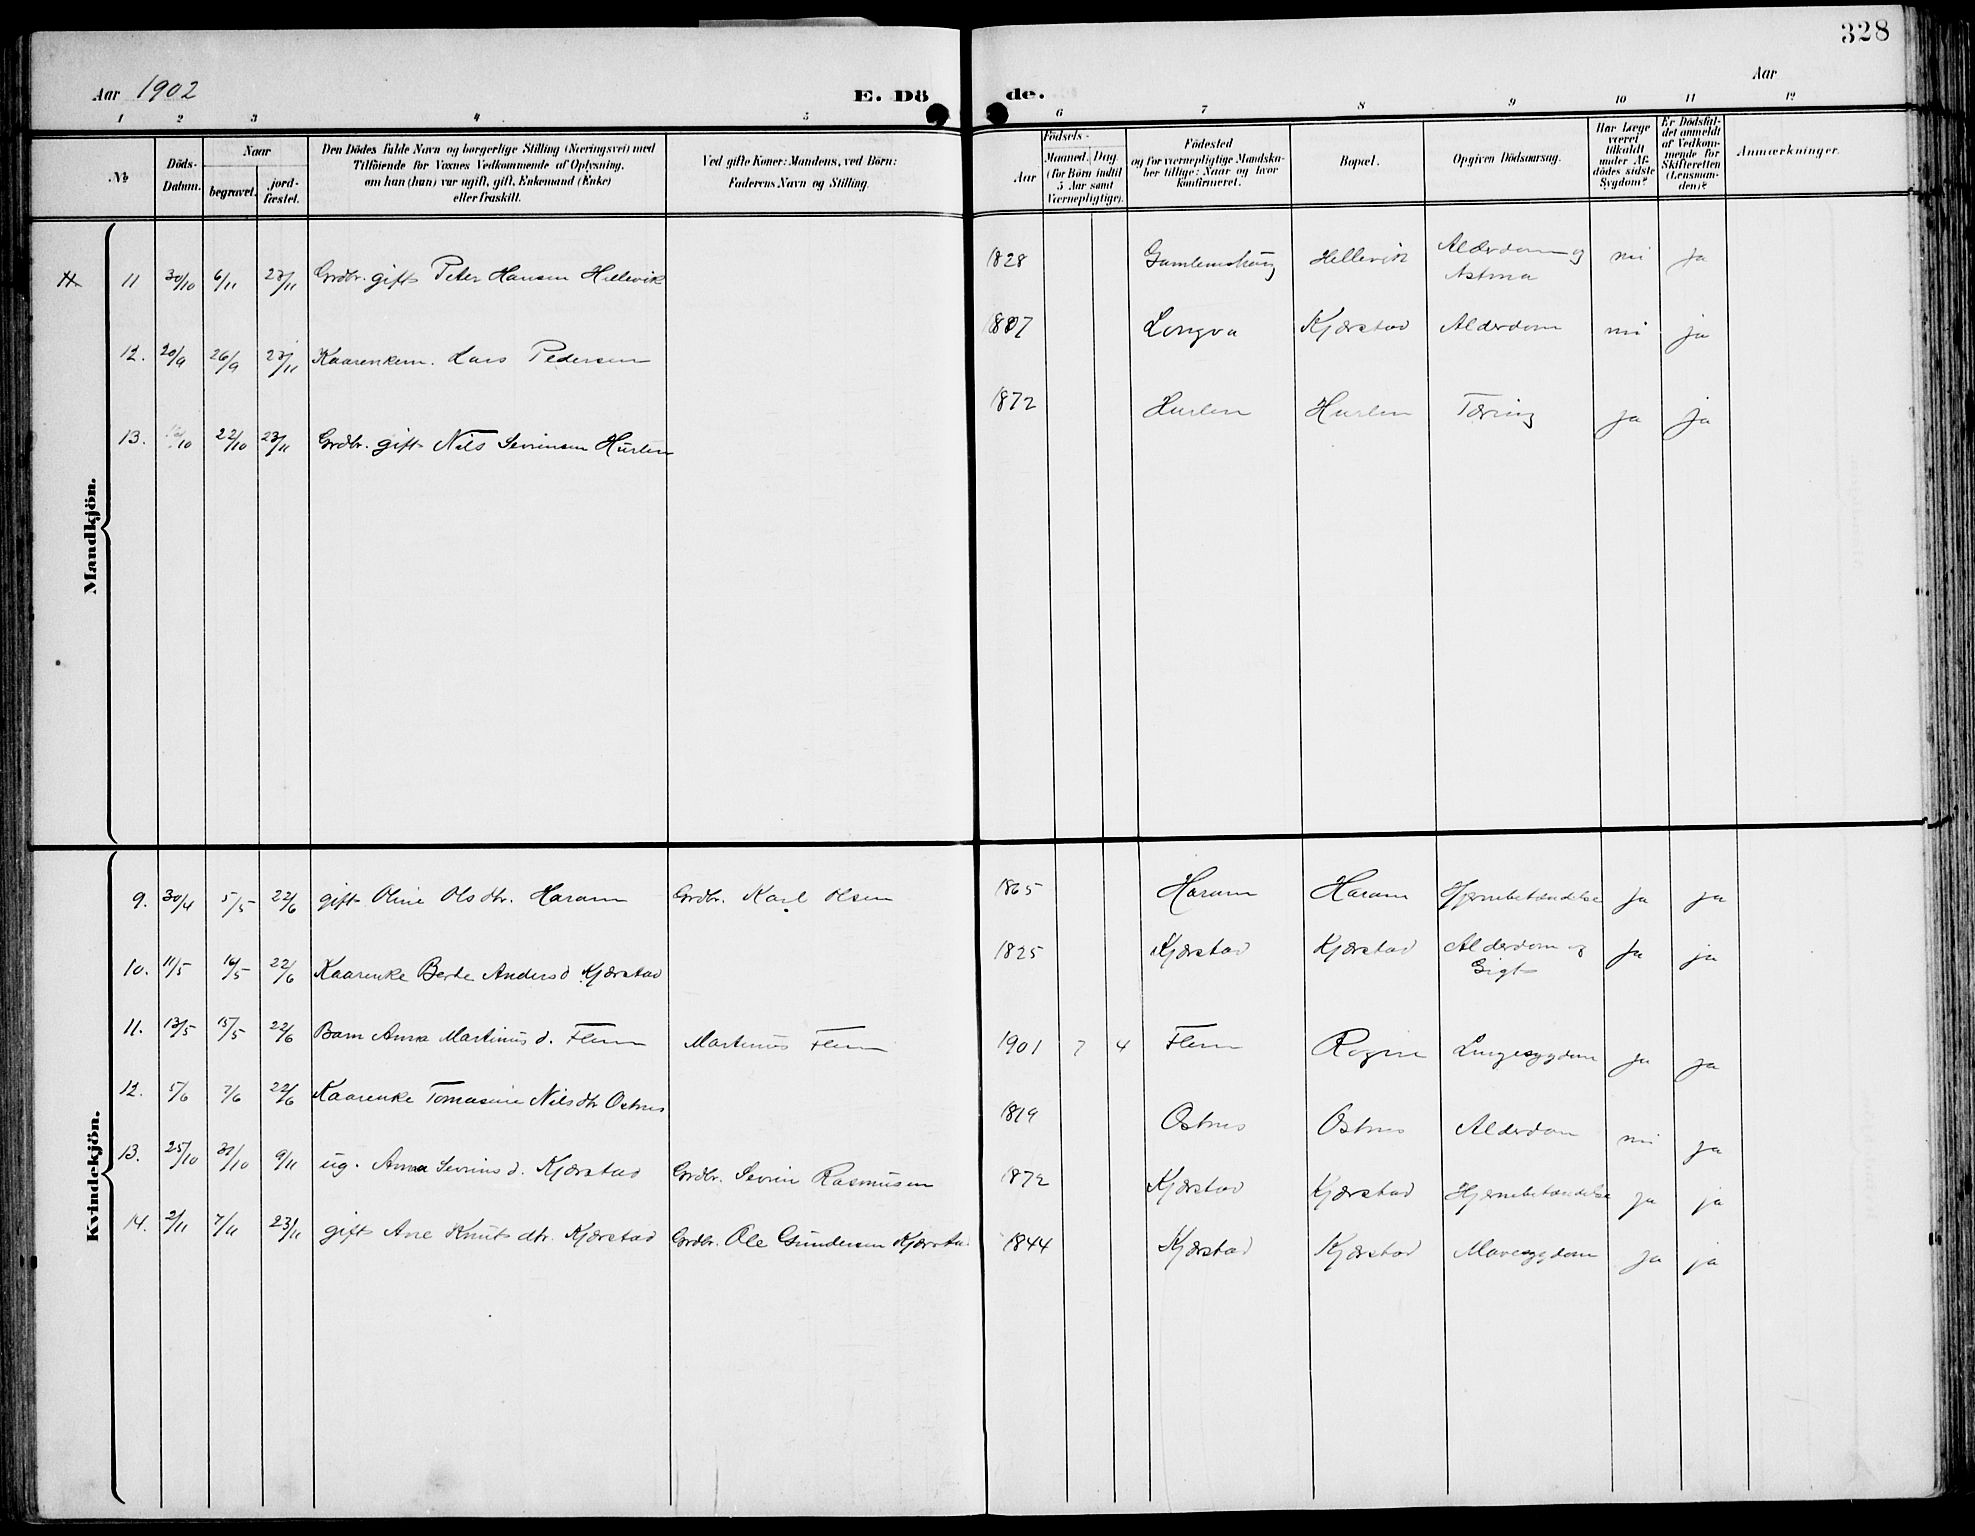 328
Aar 1902 E. Dö de. Aar
1 2 3 4 5 6 7 8 9 10 11 12
No
Döds-
Datum.
Naar
begravet.
jord-
fæstet.
Den Dödes fulde Navn og borgerlige Stilling (Næringsvei) med
Tilföiende for Voxnes Vedkommende af Oplysning,
om han (hun) var ugift, gift, Enkemand (Enke)
eller fraskilt.
Ved gifte Koner: Mandens, ved Börn:
Faderens Navn og Stilling.
Födsels-
Aar
Maaned. Dag.
(for Börn indtil
5 Aar samt
Værnepligtige).
Födested
og for værnepligtige Mandska-
ber tillige: Naar og hvor
konfirmeret.
Bopæl.
Opgiven Dödsaarsag.
Har Læge
været
tilkaldt
under Af-
dödes sidste
Sygdom?
Er Dödsfal-
det anmeldt
af Vedkom-
mende for
Skifteretten
(Lensman-
den)?
Anmærkninger.
Mandkjön.
11 30/10 6/11 23/11 Grdbr. gift Peter Hansen Hellevik 1828 Gamlemshaug Hellevik Alderdom og Astma nei ja
12. 20/9 26/9 23/11 Kaarenkem. Lars Pedersen Longva Kjærstad Alderdom nei ja
13. 22/10 23/11 Grdbr. gift Nils Sevrinsen Hurlen 1872 Hurlen Hurlen Tæring ja ja
Kvindekjön.
9. 30/4 5/5 22/6 gift Oline Olsdtr. Haram Grdbr. Karl Olsen 1865 Haram Haram Hjernebetændelse ja ja
10. 11/5 16/5 22/6 Kaarenke Berte Andersd. Kjærstad 1825 Kjærstad Kjærstad Alderdom og Gigt ja ja
11. 13/5 15/5 22/6 Barn Anna Martinus d. Flem Martinus Flem 1901 7 4 Flem Rogne Lungesygdom ja ja
12. 5/6 7/6 22/6 Kaarenke Tomasine Nilsdtr Ostnes 1819 Ostnes Ostnes Alderdom nei ja
13. 25/10 30/10 9/11 ug. Anna Sevrins d. Kjærstad Grdbr. Sevrin Rasmusen 1872 Kjærstad Kjærstad Hjernebetændelse ja ja
14. 2/11 7/11 23/11 gift Ane Knuts dtr. Kjærstad Grdbr. Ole Gundersen Kjærstad 1844 Kjærstad Kjærstad Mavesygdom ja ja